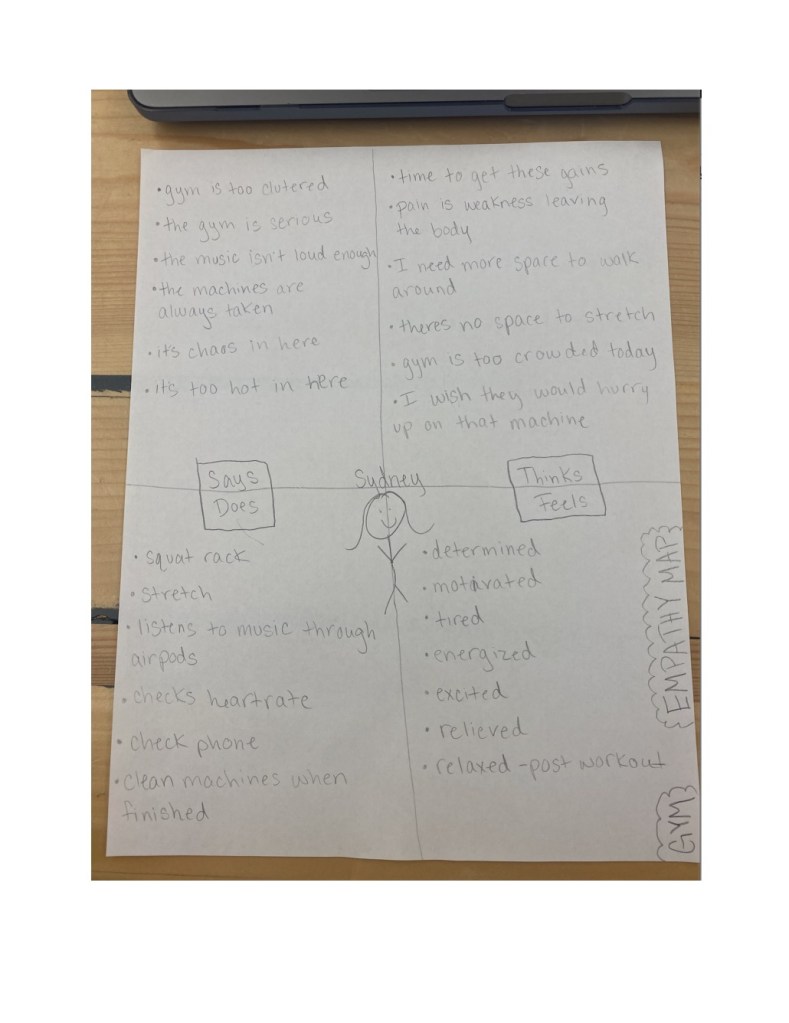 •gym is too clutered
•the gym is serious
•the music isn't loud enough
•the machines are
always taken
•its chaos in here
•its too hot in here
•time to get these gains
•pain is weakness leaving
the body
•I need more space to walk
around
•theres no space to stretch
•gym is too crowded today
•I wish they would hurry
up on that machine
Says
Does
Sydney
Thinks
Feels
•squat rack
•stretch
•listens to music through
airpods
•checks heartrate
•check phone
•clean machines when
finished
•determined
•motivated
•tired
•energized
•excited
•relieved
•relaxed -post workout
EMPATHY MAP
GYM